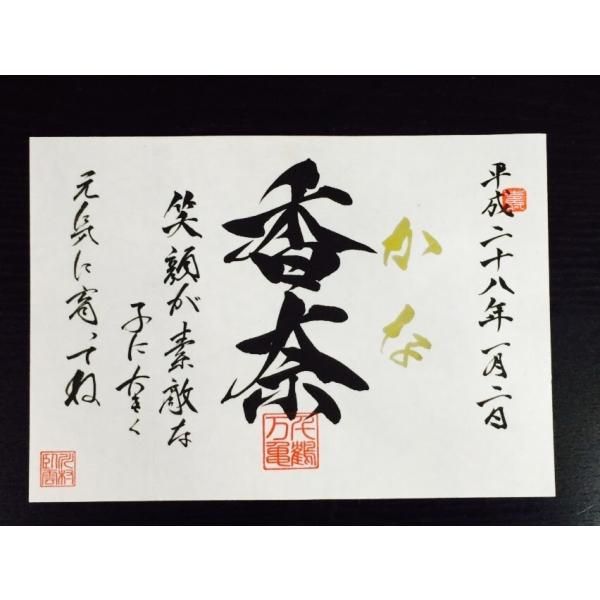 平成二十八年一月二日
かな
香奈
笑顔が素敵な
子に大きく
元気に育ってね
千鶴
万亀